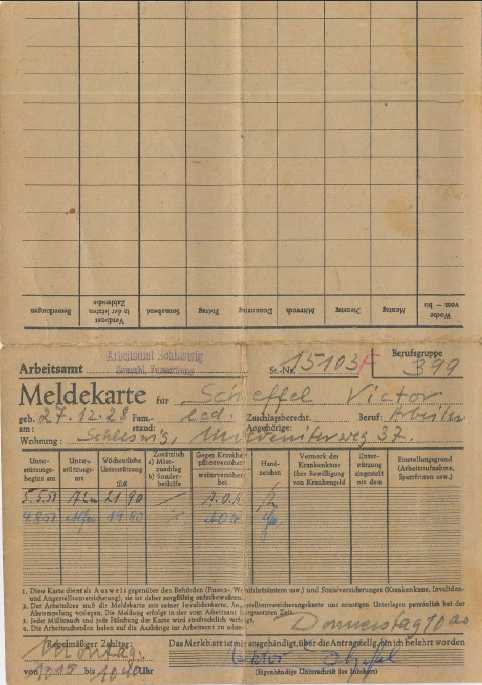 Woche vom – bis Montag Dienstag Mittwoch Donnerstag Freitag Sonnabend Verdienst in der letzten Zahlwoche Bemerkungen
Arbeitsamt Arbeitsamt Schleswig St.-Nr. 15103 Berufsgruppe 399
Meldekarte für Scheffel Victor
geb. am: 27.12.28 Fam.-stand: led. Zuschlagsberecht. Angehörige: Beruf: Arbeiter
Wohnung: Schleswig, 37.
Unter-stützungs-beginn am Unter-stützungs-art Wöchentliche Unterstützung DM Zusätzlich a) Miet-zuschlag b) Sonder-beihilfe Gegen Krankheit pflichtversichert weiterversichert bei Hand-zeichen Vermerk der Krankenkasse über Bewilligung von Krankengeld Unter-stützung eingestellt mit dem Einstellungsgrund (Arbeitsaufnahme, Sperrfristen usw.)
5.5.51 Alu 21 90 A.O.K.
19.80
1. Diese Karte dient als Ausweis gegenüber den Behörden (Finanz-, Wohlfahrtsämtern usw.) und Sozialversicherungen (Krankenkasse, Invaliden-
und Angestelltenversicherung), sie ist daher sorgfältig aufzubewahren.
2. Der Arbeitslose muß die Meldekarte mit seiner Invalidenkarte, Angestelltenversicherungskarte und sonstigen Unterlagen persönlich bei der
Abstempelung vorlegen. Die Meldung erfolgt in der vom Arbeitsamt festgesetzten Zeit.
3. Jeder Mißbrauch und jede Fälschung der Karte wird strafrechtlich verfolgt.
4. Die Arbeitsuchenden haben auf die Aushänge im Arbeitsamt zu achten.
Donnerstag 10 00
Regelmäßiger Zahltag: Das Merkblatt ist mir ausgehändigt, über die Antragstellg. bin ich belehrt worden
Montag
von bis Uhr (Eigenhändige Unterschrift des Inhabers)